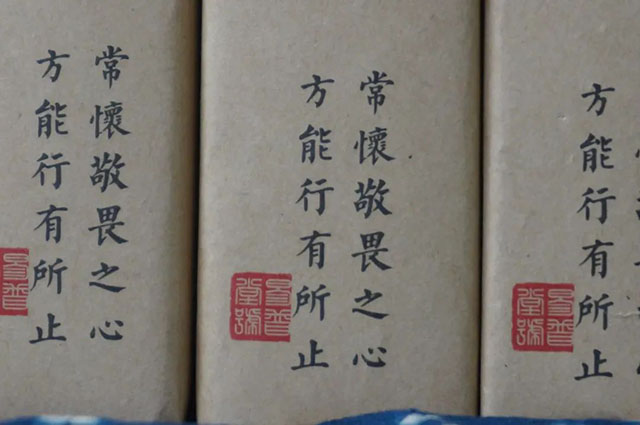 常懷敬畏之心
方能行有所止
常懷敬畏之心
方能行有所止
方能行有所止